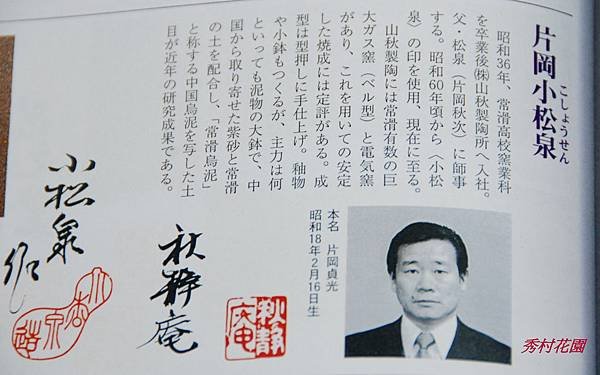 こしょうせん
片岡小松泉
昭和36年、常滑高校窯業科
を卒業後㈱山秋製陶所へ入社。
父・松泉（片岡秋次）に師事
する。昭和60年頃から〈小松
泉〉の印を使用、現在に至る。
山秋製陶には常滑有数の巨
大ガス窯（ベル型）と電気窯
があり、これを用いての安定
した焼成には定評がある。成
型は型押しに手仕上げ。釉物
や小鉢もつくるが、主力は何
といっても泥物の大鉢で、中
国から取り寄せた紫砂と常滑
の土を配合し、「常滑烏泥」
と称する中国烏泥を写した土
目が近年の研究成果である。
本名　片岡貞光
昭和18年2月16日生
小松泉
秀村花園